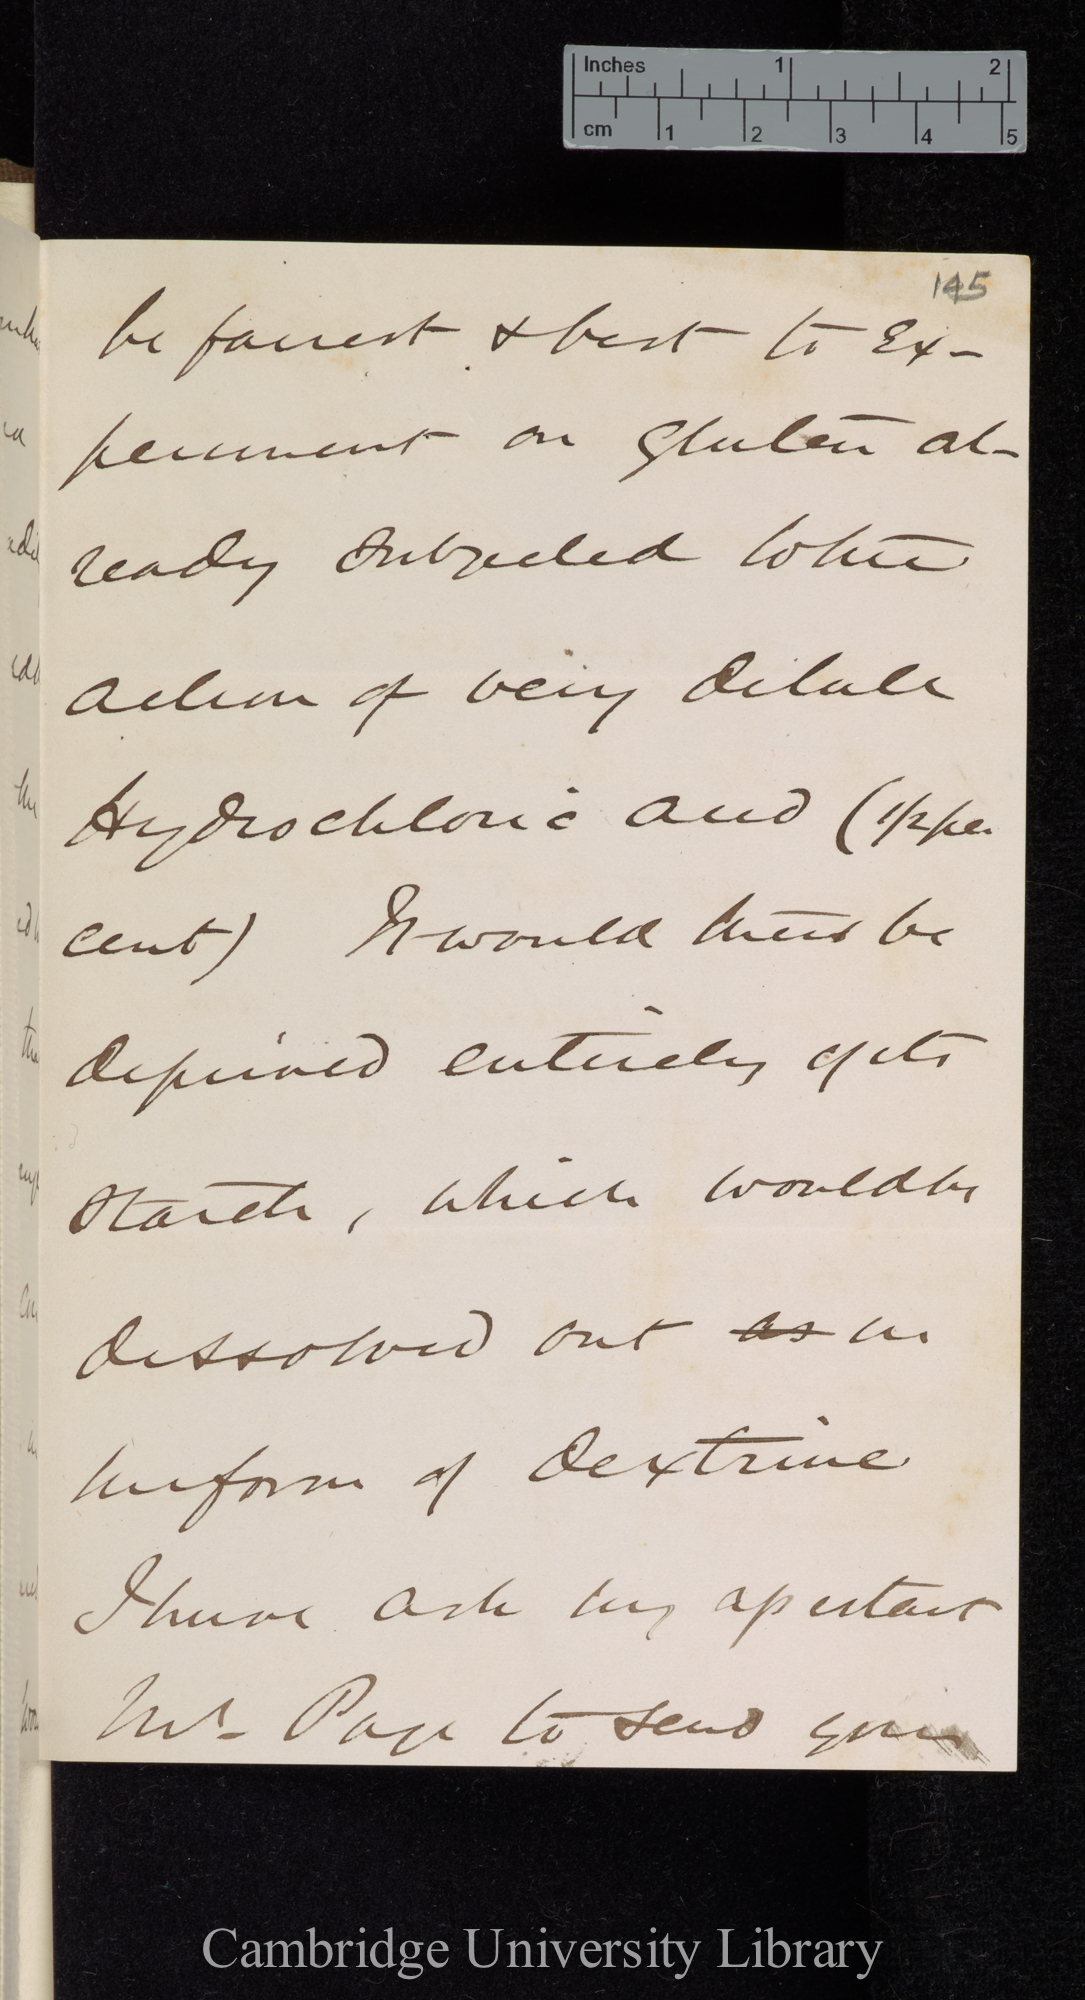 Inches 1 2
cm 1 2 3 4 5
145
be fairest & best to Ex-
periment on Gluten al-
ready subjected to the
action of very dilute
Hydrochloric acid (1/2 per
cent) It would then be
deprived entirely of its
Starch, which would be
dissolved out as in
the form of Dextrine
I have ask my assistant
Mr. Page to send you
Cambridge University Library